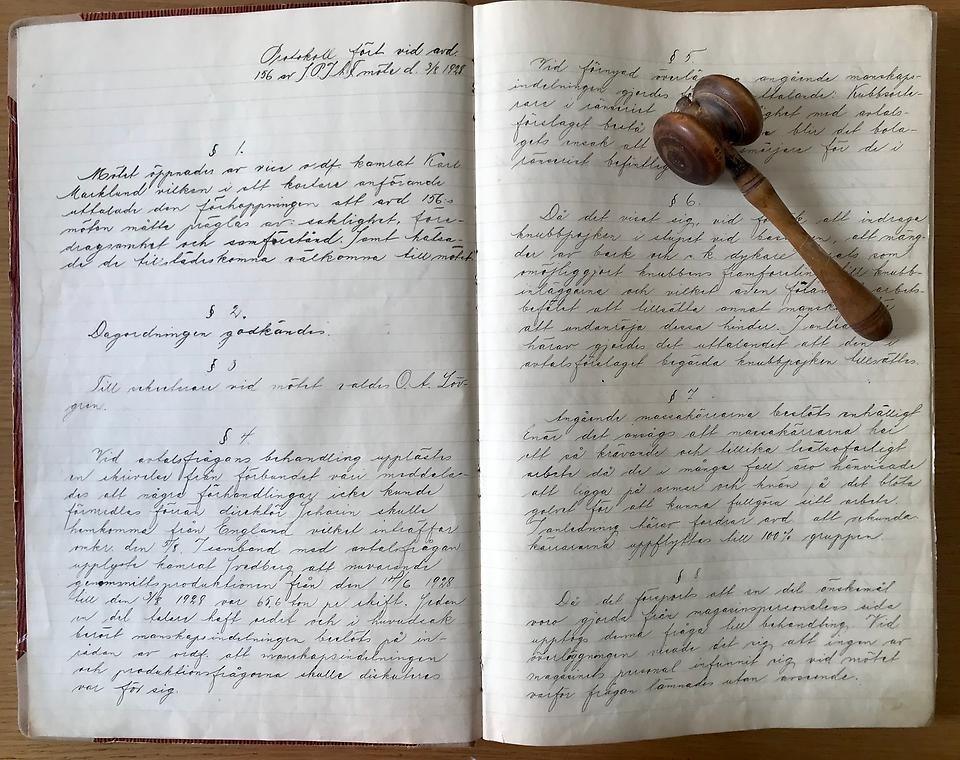 Protokoll fört vid avd.
156 av möte d. 3/8 1928
§ 1.
Mötet öppnades av vice ordf. kamrat Karl
Marklund vilken i ett kortare anförande
uttalade den förhoppningen att avd 156:s
möten måtte präglas av saklighet, före-
dragsamhet och samförstånd. Samt hälsa-
de de tillstädeskomna välkomna till mötet
§ 2.
Dagordningen godkändes.
§ 3
Till sekreterare vid mötet valdes O. A. Löv-
gren.
§ 4
Vid avtalsfrågans behandling upplästes
en skrivelse från förbundet vari meddela-
des att några förhandlingar icke kunde
förmedlas förrän direktör skulle
hemkomma från England vilket inträffar
omkr. den 5/8. I samband med avtalsfrågan
upplyste kamrat att nuvarande
genomsnittsproduktionen från den 14/6 1928
till den 3/8 1928 var 65,6 ton pr skift. Sedan
en del talare haft ordet och i huvudsak
berört manskapsindelningen beslöts på in-
rådan av ordf. att manskapsindelningen
och produktionsfrågorna skulle diskuteras
var för sig.
§ 5
Vid förnyad angående manskaps-
indelningen gjordes uttalande: Kubbsorte-
rare i renseriet med avtals-
företaget blir det bola-
gets ensak att smörjare för de i
renseriet
§ 6.
Då det visat sig, vid att indraga
knubbpojken i stupet vid att mäng-
der av bark och dykare som
omöjliggjort knubbens framforsling till knubb-
inläggarna och vilket arbets-
befälet att tillsätta annat
att undanröja dessa hinder. I
härav gjordes det uttalandet att den i
avtalsföretaget begärda knubbpojken tillsättes.
§ 7
Angående massakärrarna beslöts enhälligt
Enär det ansågs att massakärrarna har
ett så krävande och tillika hälsofarligt
arbete då de i många fall äro hänvisade
att ligga på armar och knän å det blöta
golvet för att kunna fullgöra sitt arbete.
I anledning härav fordrar avd. att sekunda-
kärrararna uppflyttas till 100% gruppen.
§ 8
Då det att en del önskemål
voro gjorda från magasinspersonalens sida
upptogs denna fråga till behandling. Vid
överläggningen visade det sig att ingen av
magasinets personal infunnit sig vid mötet
varför frågan lämnades utan avseende.